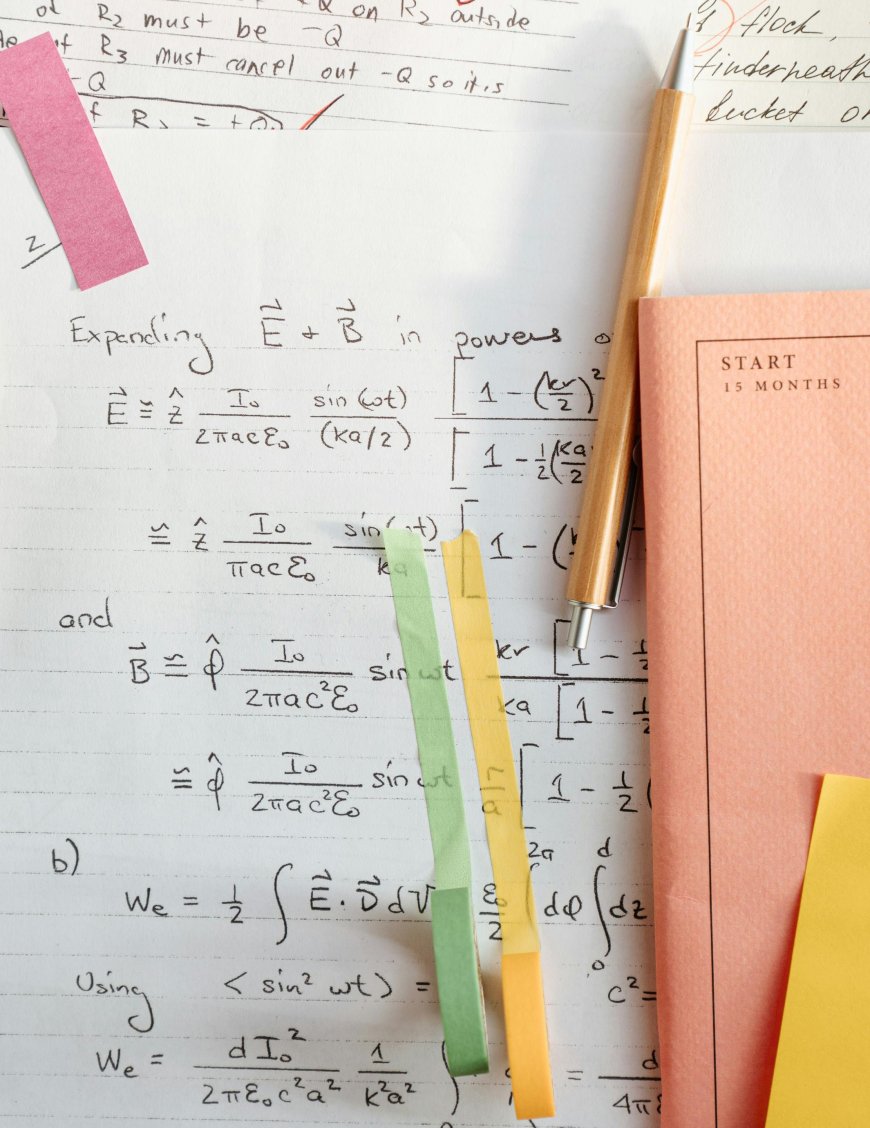 of R₂ must be -Q
Q on R₂ outside
of R₃ must cancel out -Q so it's
-Q
f R₂ = +Q
flock,
underneath
bucket
2
Expanding E⃗ + B⃗ in powers
E⃗ ≅ ẑ I₀/(2πacε₀) sin(ωt)/(ka/2) [1 - (kr/2)² / [1 - ½(ka/2
≅ ẑ I₀/(πacε₀) sin(ωt)/ka [1 - (
and
B⃗ ≅ φ̂ I₀/(2πac²ε₀) sin ωt kr/ka [1 - ½ / [1 - ½
≅ φ̂ I₀/(2πac²ε₀) sin ωt r/a [1 - ½ (
b)
We = ½ ∫ E⃗ · D⃗ dV ε₀/2 ∫ 2π dφ ∫₀ᵈ dz
Using < sin² ωt> = c² =
We = dI₀²/(2πε₀c²a²) 1/(k²a²) ∫ = d/(4πε
START
15 MONTHS